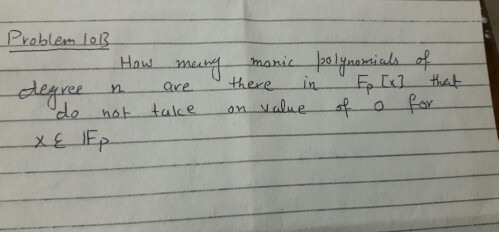 Problem 10B
How many monic polynomials of
degree n are there in Fp[x] that
do not take on value of 0 for
x ε IFp